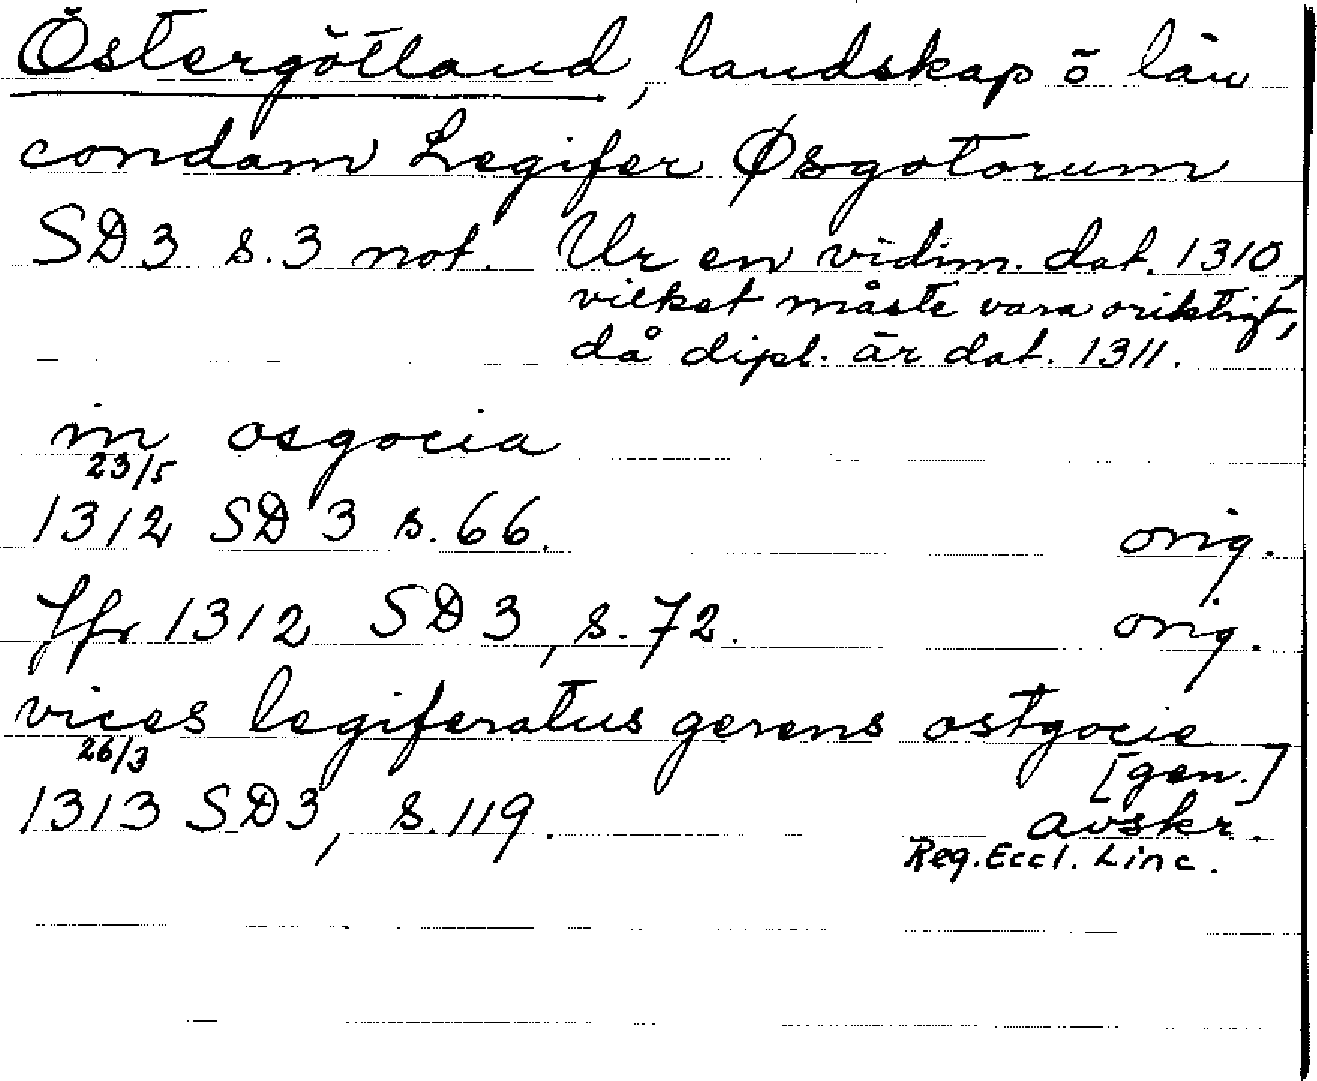 Östergötland, landskap o län
condam Legifer Øsgotorum
SD 3 s. 3 not. Ur en vidim. dat. 1310,
vilket måste vara oriktigt,
då dipl. är dat. 1311.
in osgocia
23/5
1312 SD 3 s. 66. orig.
Jfr 1312 SD 3, s. 72. orig.
vices legiferatus gerens ostgocie
26/3 [gen.]
1313 SD3, s. 119. avskr.
Reg. Eccl. Linc.